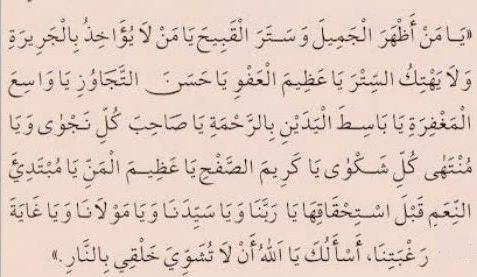 «يَا مَنْ أَظْهَرَ الْجَمِيلَ وَسَتَرَ الْقَبِيحَ يَا مَنْ لَا يُؤَاخِذُ بِالْجَرِيرَةِ
وَلَا يَهْتِكُ السِّتْرَ يَا عَظِيمَ الْعَفْوِ يَا حَسَنَ التَّجَاوُزِ يَا وَاسِعَ
الْمَغْفِرَةِ يَا بَاسِطَ الْيَدَيْنِ بِالرَّحْمَةِ يَا صَاحِبَ كُلِّ نَجْوٰى وَيَا
مُنْتَهٰى كُلِّ شَكْوٰى يَا كَرِيمَ الصَّفْحِ يَا عَظِيمَ الْمَنِّ يَا مُبْتَدِئَ
النِّعَمِ قَبْلَ اسْتِحْقَاقِهَا يَا رَبَّنَا وَيَا سَيِّدَنَا وَيَا مَوْلَانَا وَيَا غَايَةَ
رَغْبَتِنَا، أَسْأَلُكَ يَا اَللهُ أَنْ لَا تُشَوِّيَ خَلْقِي بِالنَّارِ.»